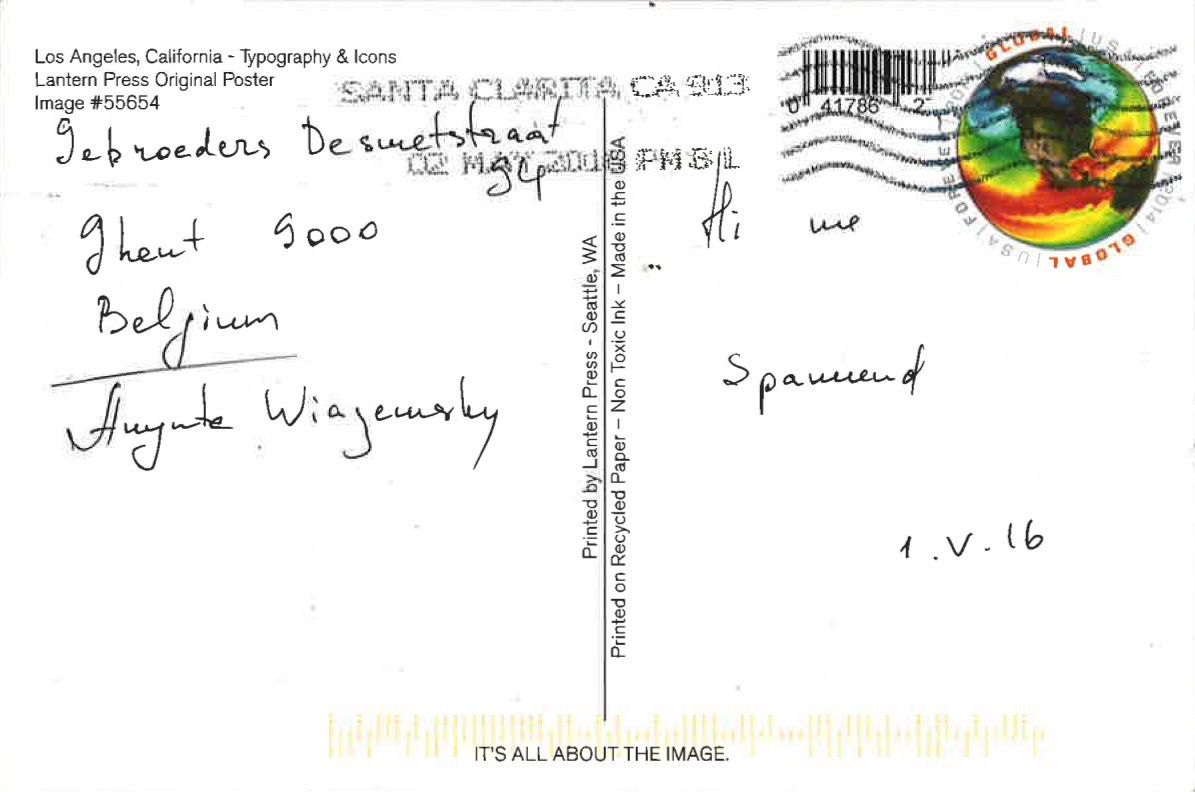 Los Angeles, California - Typography & Icons
Lantern Press Original Poster
Image #55654
Gebroeders Desmetstraat
94
Ghent 9000
Belgium
Wiazemsky
SANTA CLARITA CA 913
02 MAY 2016 PM 8 L
0 41786 2
GLOBAL | USA | FOREVER | 2014 | GLOBAL | USA | FOREVER | 2014 |
Hi me
Spannend
1.V.16
Printed by Lantern Press - Seattle, WA
Printed on Recycled Paper – Non Toxic Ink – Made in the USA
IT'S ALL ABOUT THE IMAGE.